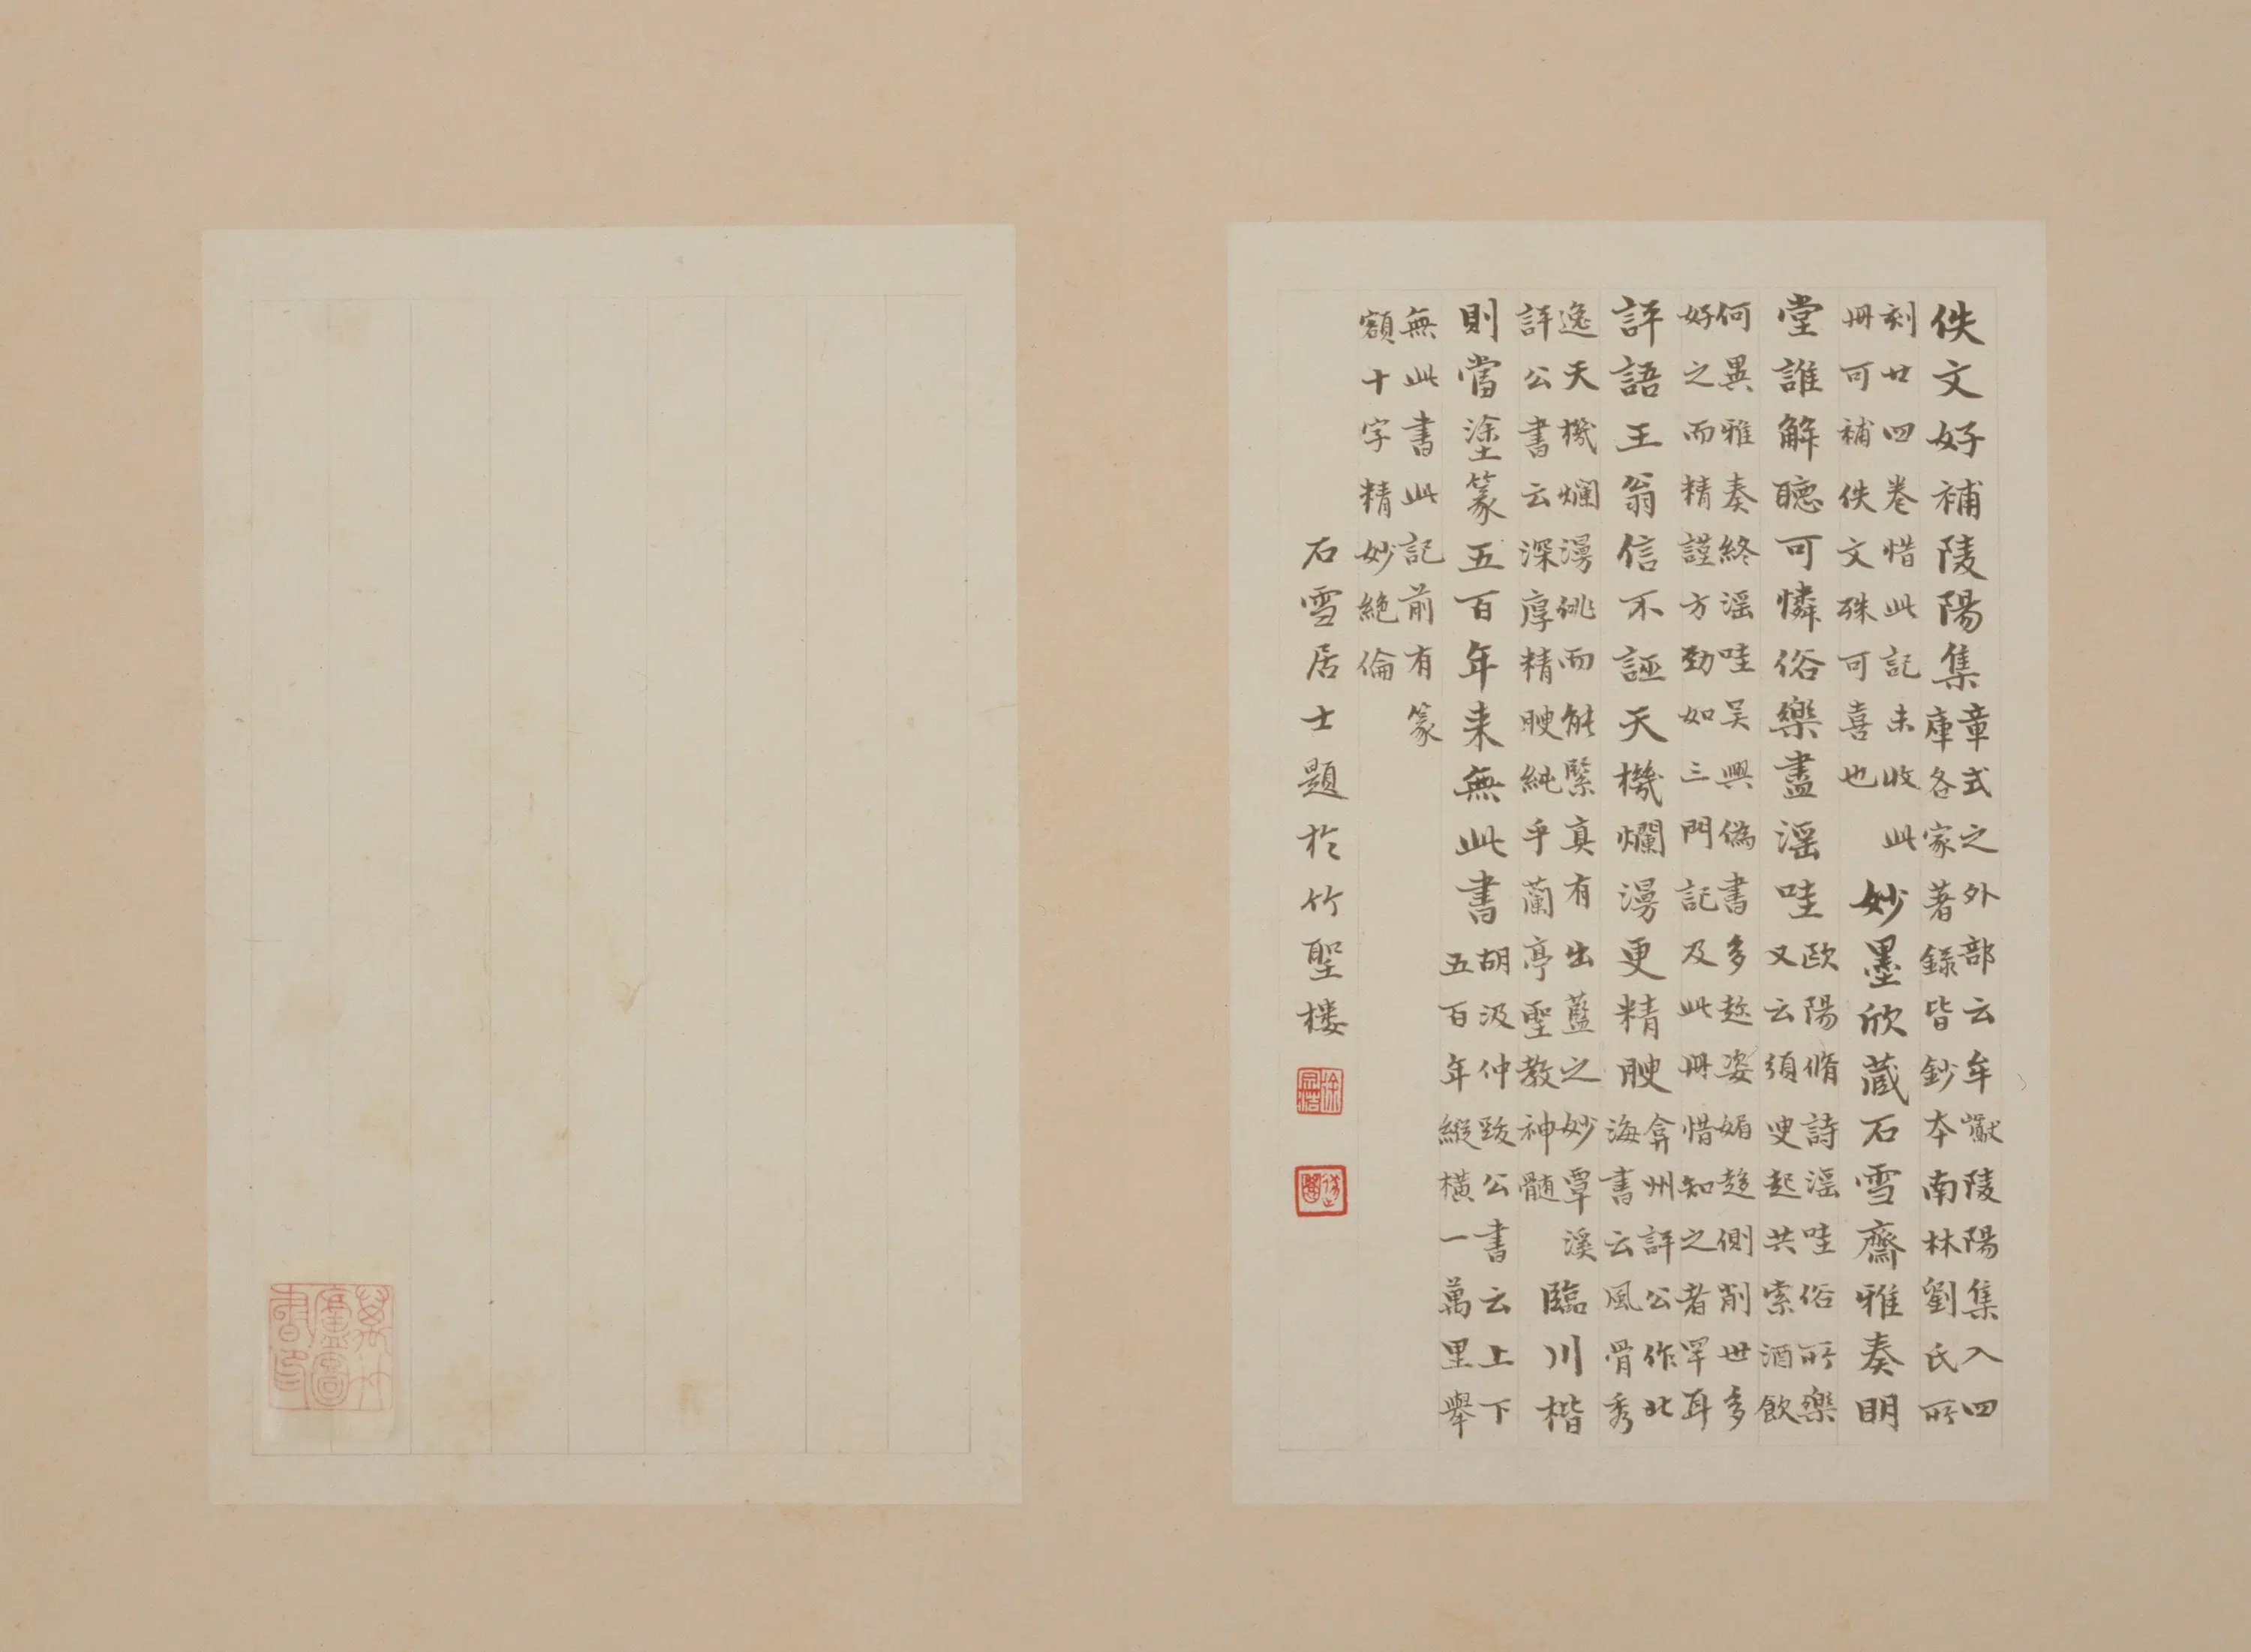 佚文好補陵陽集
章式之外部云牟巘陵陽集入四
庫各家著録皆鈔本南林劉氏所
刻廿四卷惜此記未收此
冊可補佚文殊可喜也
妙墨欣蔵石雪齋雅奏明
堂誰解聽可憐俗樂盡滛哇
歐陽脩詩滛哇俗所樂
又云須臾起共索酒飲
何異雅奏終滛哇吴興偽書多趂姿媚趍側削世多
好之而精謹方勁如三門記及此冊惜知之者罕耳
評語王翁信不誣天機爛漫更精腴
弇州評公作北
海書云風骨秀
逸天機爛漫佻而能緊真有出藍之妙覃溪
評公書云深厚精腴純乎蘭亭聖教神髓
臨川楷
則當塗篆五百年来無此書
胡汲仲跋公書云上下
五百年縱横一萬里舉
無此書此記前有篆
額十字精妙絶倫
石雪居士題於竹聖楼
徐宗浩